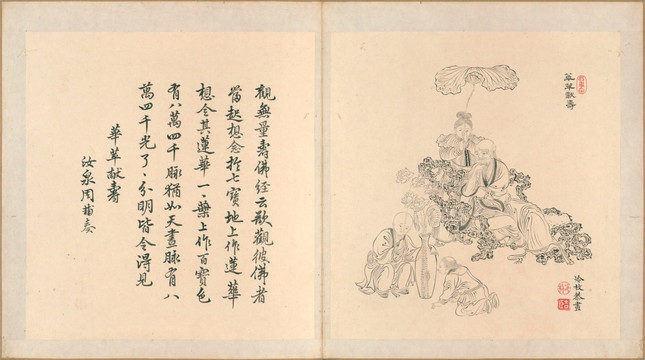 獻壽
冷枚恭畫
觀無量壽佛經云欲觀彼佛者
當起想念於七寶地上作蓮華
想令其蓮華一一葉上作百寶色
有八萬四千脉猶如天畫脉有八
萬四千光了了分明皆令得見
華 献壽
汝泉周